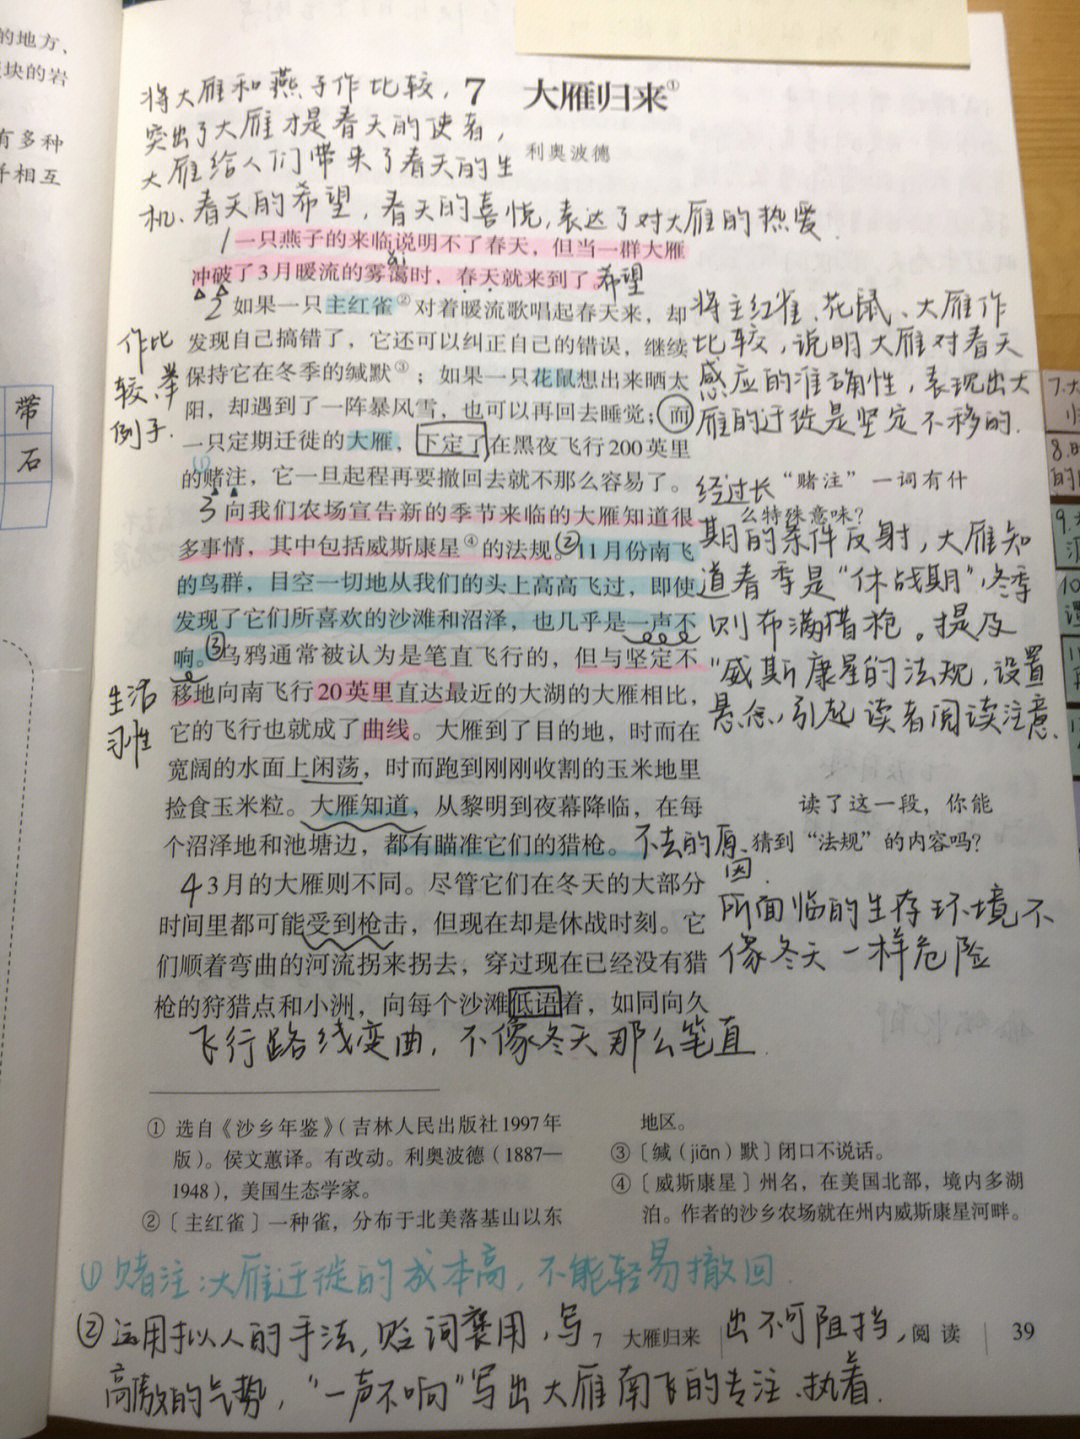 的地方、
块的岩
有多种
相互
带
石
将大雁和燕子作比较,
突出了大雁才是春天的使者,
大雁给人们带来了春天的生
机、春天的希望,春天的喜悦,表达了对大雁的热爱.
7 大雁归来①
利奥波德
1一只燕子的来临说明不了春天，但当一群大雁
ǎi
冲破了3月暖流的雾霭时，春天就来到了。希望
2如果一只主红雀②对着暖流歌唱起春天来，却
发现自己搞错了，它还可以纠正自己的错误，继续
保持它在冬季的缄默③；如果一只花鼠想出来晒太
阳，却遇到了一阵暴风雪，也可以再回去睡觉；而
一只定期迁徙的大雁，下定了在黑夜飞行200英里
(1)
的赌注，它一旦起程再要撤回去就不那么容易了。
作比
较、举
例子.
将主红雀、花鼠、大雁作
比较,说明大雁对春天
感应的准确性,表现出大
雁的迁徙是坚定不移的.
“赌注”一词有什
么特殊意味？
3向我们农场宣告新的季节来临的大雁知道很
多事情，其中包括威斯康星④的法规。②11月份南飞
的鸟群，目空一切地从我们的头上高高飞过，即使
发现了它们所喜欢的沙滩和沼泽，也几乎是一声不
响。③乌鸦通常被认为是笔直飞行的，但与坚定不
移地向南飞行20英里直达最近的大湖的大雁相比，
它的飞行也就成了曲线。大雁到了目的地，时而在
宽阔的水面上闲荡，时而跑到刚刚收割的玉米地里
捡食玉米粒。大雁知道，从黎明到夜幕降临，在每
个沼泽地和池塘边，都有瞄准它们的猎枪。不去的原
因.
经过长
期的条件反射,大雁知
道春季是“休战期”,冬季
则布满猎枪。提及
“威斯康星的法规,设置
悬念,引起读者阅读注意.
生活
习性
读了这一段，你能
猜到“法规”的内容吗？
4 3月的大雁则不同。尽管它们在冬天的大部分
时间里都可能受到枪击，但现在却是休战时刻。它
们顺着弯曲的河流拐来拐去，穿过现在已经没有猎
枪的狩猎点和小洲，向每个沙滩低语着，如同向久
所面临的生存环境不
像冬天一样危险
飞行路线变曲,不像冬天那么笔直.
① 选自《沙乡年鉴》（吉林人民出版社1997年
版）。侯文蕙译。有改动。利奥波德（1887—
1948），美国生态学家。
②〔主红雀〕一种雀，分布于北美落基山以东
地区。
③〔缄（jiān）默〕闭口不说话。
④〔威斯康星〕州名，在美国北部，境内多湖
泊。作者的沙乡农场就在州内威斯康星河畔。
(1)赌注:大雁迁徙的成本高,不能轻易撤回.
②运用拟人的手法,贬词褒用,写出不可阻挡,
高傲的气势,“一声不响”写出大雁南飞的专注、执着.
7 大雁归来
阅读 39
7.大
8.
的
9.
10